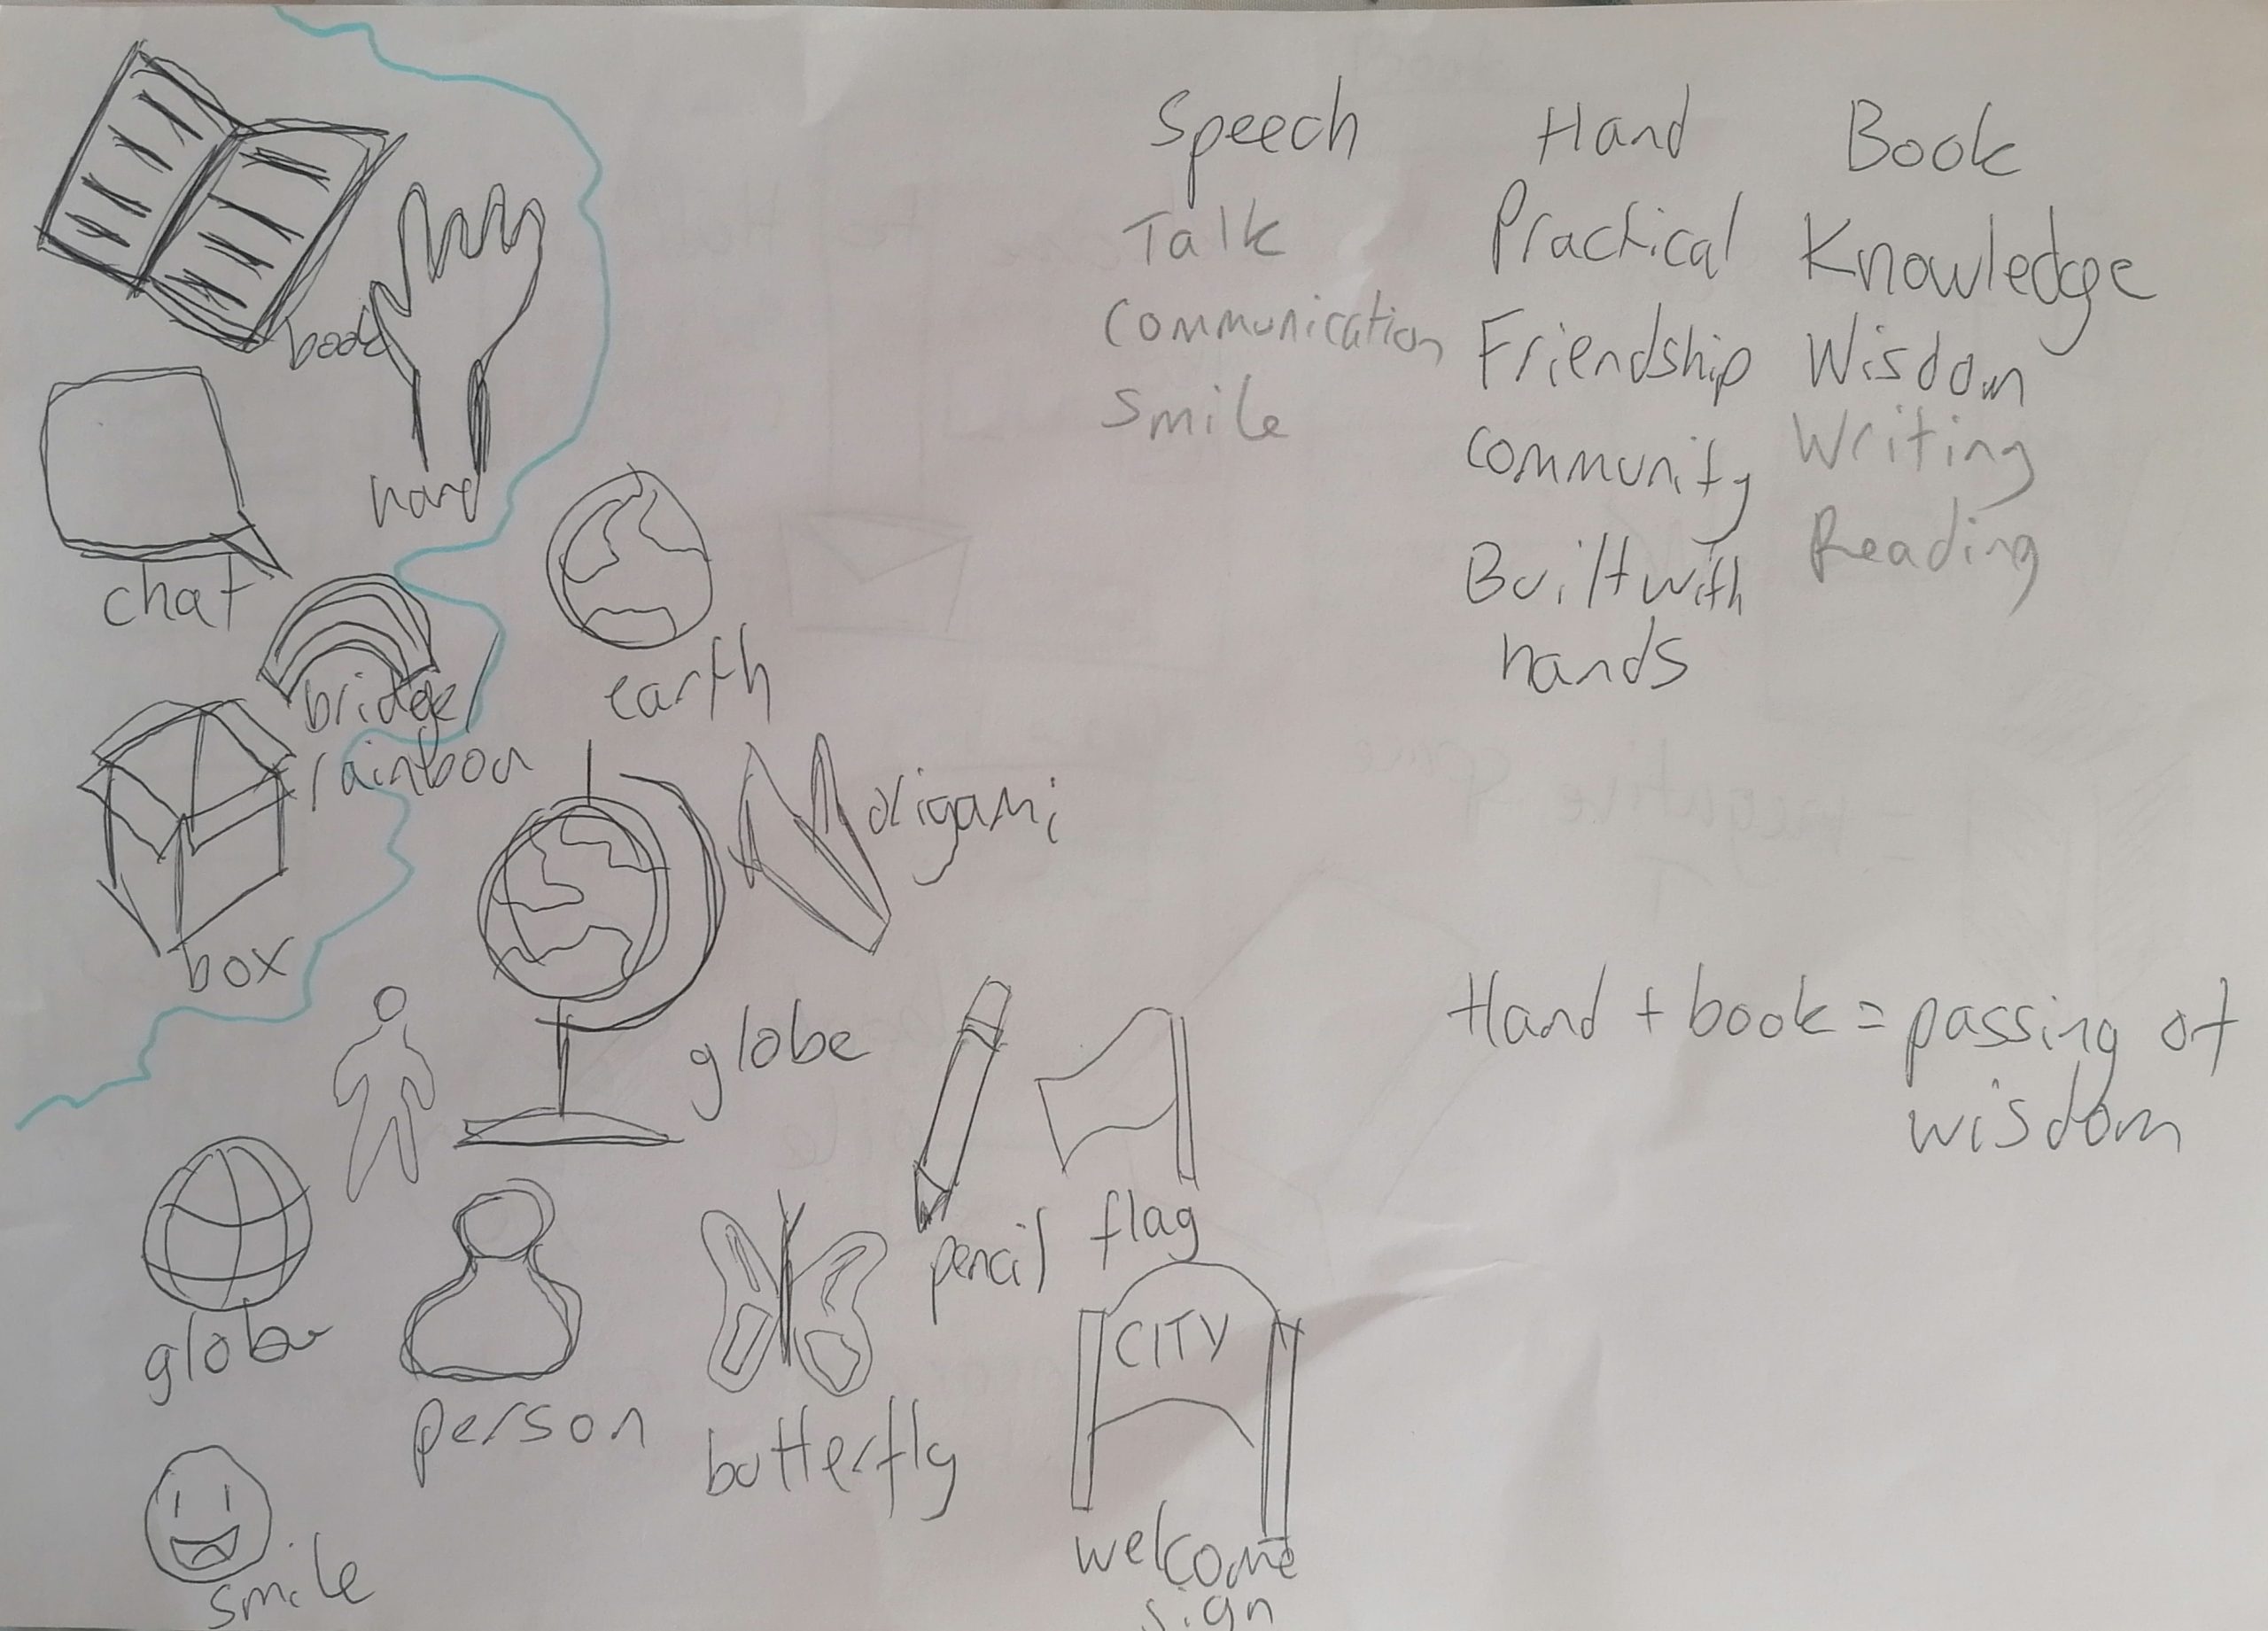 book
hand
chat
bridge/
rainbow
earth
origami
box
globe
pencil
flag
globe
person
butterfly
CITY
welcome
sign
smile
Speech
Talk
Communication
Smile
Hand
Practical
Friendship
Community
Built with
hands
Book
Knowledge
Wisdom
Writing
Reading
Hand + book = passing of
wisdom